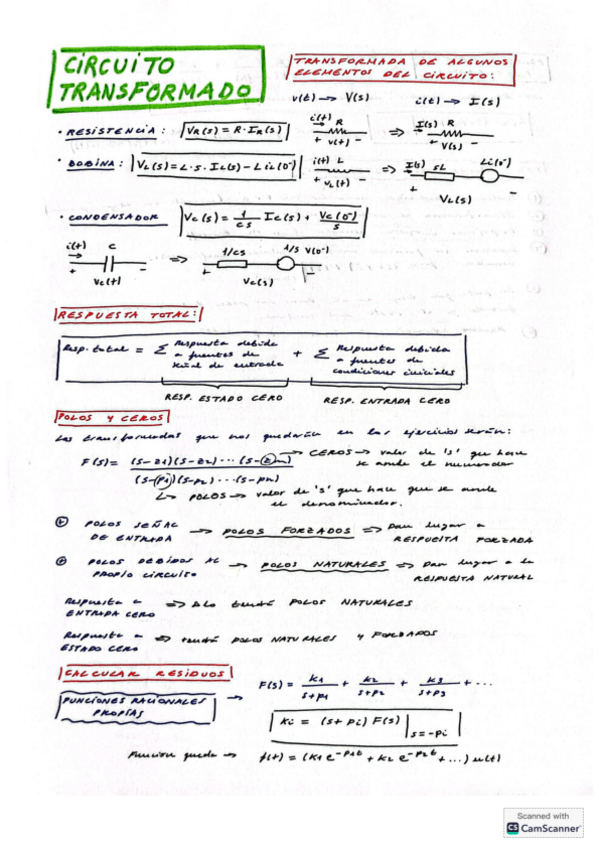 CIRCUITO
TRANSFORMADO
TRANSFORMADA DE ALGUNOS
ELEMENTOS DEL CIRCUITO:
v(t) → V(s) i(t) → I(s)
• RESISTENCIA: VR(s) = R·IR(s) i(t) R + v(t) - => I(s) R + V(s) -
• BOBINA: VL(s) = L·s·IL(s) - L iL(0⁻) i(t) L + vL(t) - => I(s) sL Li(0⁻) + - VL(s)
• CONDENSADOR Vc(s) = 1/cs Ic(s) + Vc(0⁻)/s
i(t) C + - Vc(t) => 1/cs 1/s V(0⁻) + - Vc(s)
RESPUESTA TOTAL:
Resp. total = Σ Respuesta debida a fuentes de señal de entrada + Σ Respuesta debida a fuentes de condiciones iniciales
RESP. ESTADO CERO RESP. ENTRADA CERO
POLOS Y CEROS
Las transformadas que nos quedarán en los ejercicios serán:
F(s) = (s-z1)(s-z2)...(s-zm) / (s-p1)(s-p2)...(s-pn)
→ CEROS → valor de 's' que hace
se anule el numerador
↳ POLOS → valor de 's' que hace que se anule
el denominador.
POLOS SEÑAL
DE ENTRADA → POLOS FORZADOS => Dan lugar a
RESPUESTA FORZADA
POLOS DEBIDOS AL
PROPIO CIRCUITO → POLOS NATURALES => Dan lugar a la
RESPUESTA NATURAL
Respuesta a
ENTRADA CERO => Solo tendrá POLOS NATURALES
Respuesta a
ESTADO CERO => tendrá POLOS NATURALES Y FORZADOS
CALCULAR RESIDUOS
FUNCIONES RACIONALES
PROPIAS → F(s) = K1/(s+p1) + K2/(s+p2) + K3/(s+p3) + ...
Ki = (s + pi) F(s)|s=-pi
Función queda → f(t) = (K1 e^-p1t + K2 e^-p2t + ...) u(t)
Scanned with
CS CamScanner